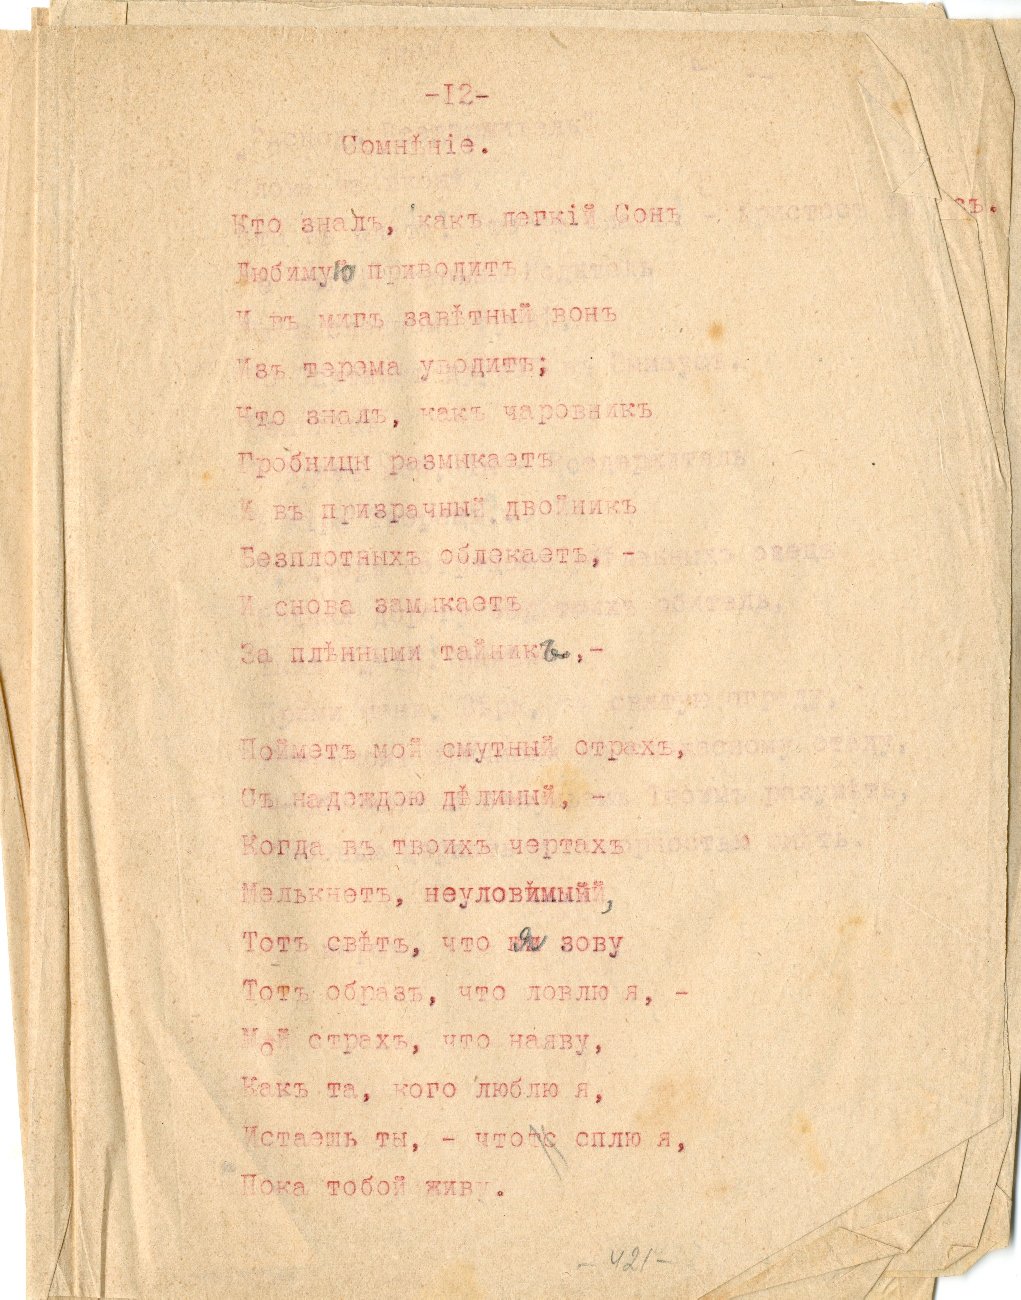 -I2-
Сомнѣніе.
Кто зналъ, какъ легкій Сонъ
Любимую приводитъ
И въ мигъ завѣтный вонъ
Изъ терема уводитъ;
Кто зналъ, какъ чаровникъ
Гробницы размыкаетъ
И въ призрачный двойникъ
Безплотныхъ облекаетъ, -
И снова замыкаетъ
За плѣнными тайникъ,-
Пойметъ мой смутный страхъ,
Съ надеждою дѣлимый, -
Когда въ твоихъ чертахъ
Мелькнетъ, неуловимый,
Тотъ свѣтъ, что я зову
Тотъ образъ, что ловлю я, -
Мой страхъ, что наяву,
Какъ та, кого люблю я,
Истаешь ты, - что сплю я,
Пока тобой живу.
- 421 -